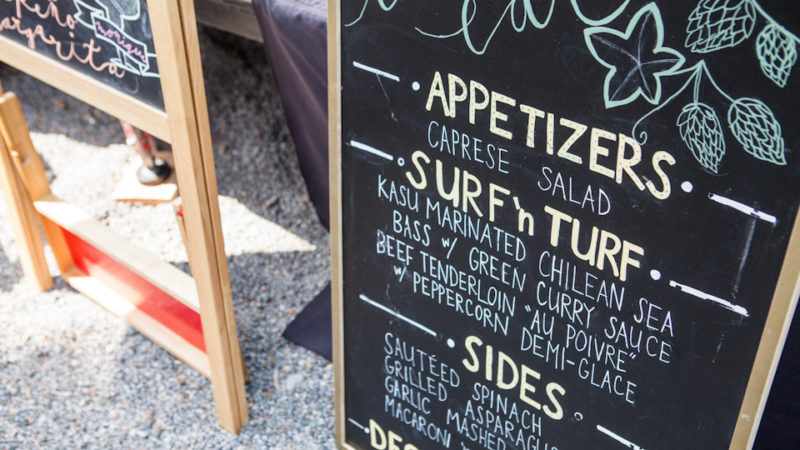 Margarita
APPETIZERS
CAPRESE SALAD
SURF 'n TURF
KASU MARINATED CHILEAN SEA
BASS w/ GREEN CURRY SAUCE
BEEF TENDERLOIN "AU POIVRE"
w/ PEPPERCORN DEMI-GLACE
SIDES
SAUTÉED SPINACH
GRILLED ASPARAGUS
GARLIC MASHED
MACARONI